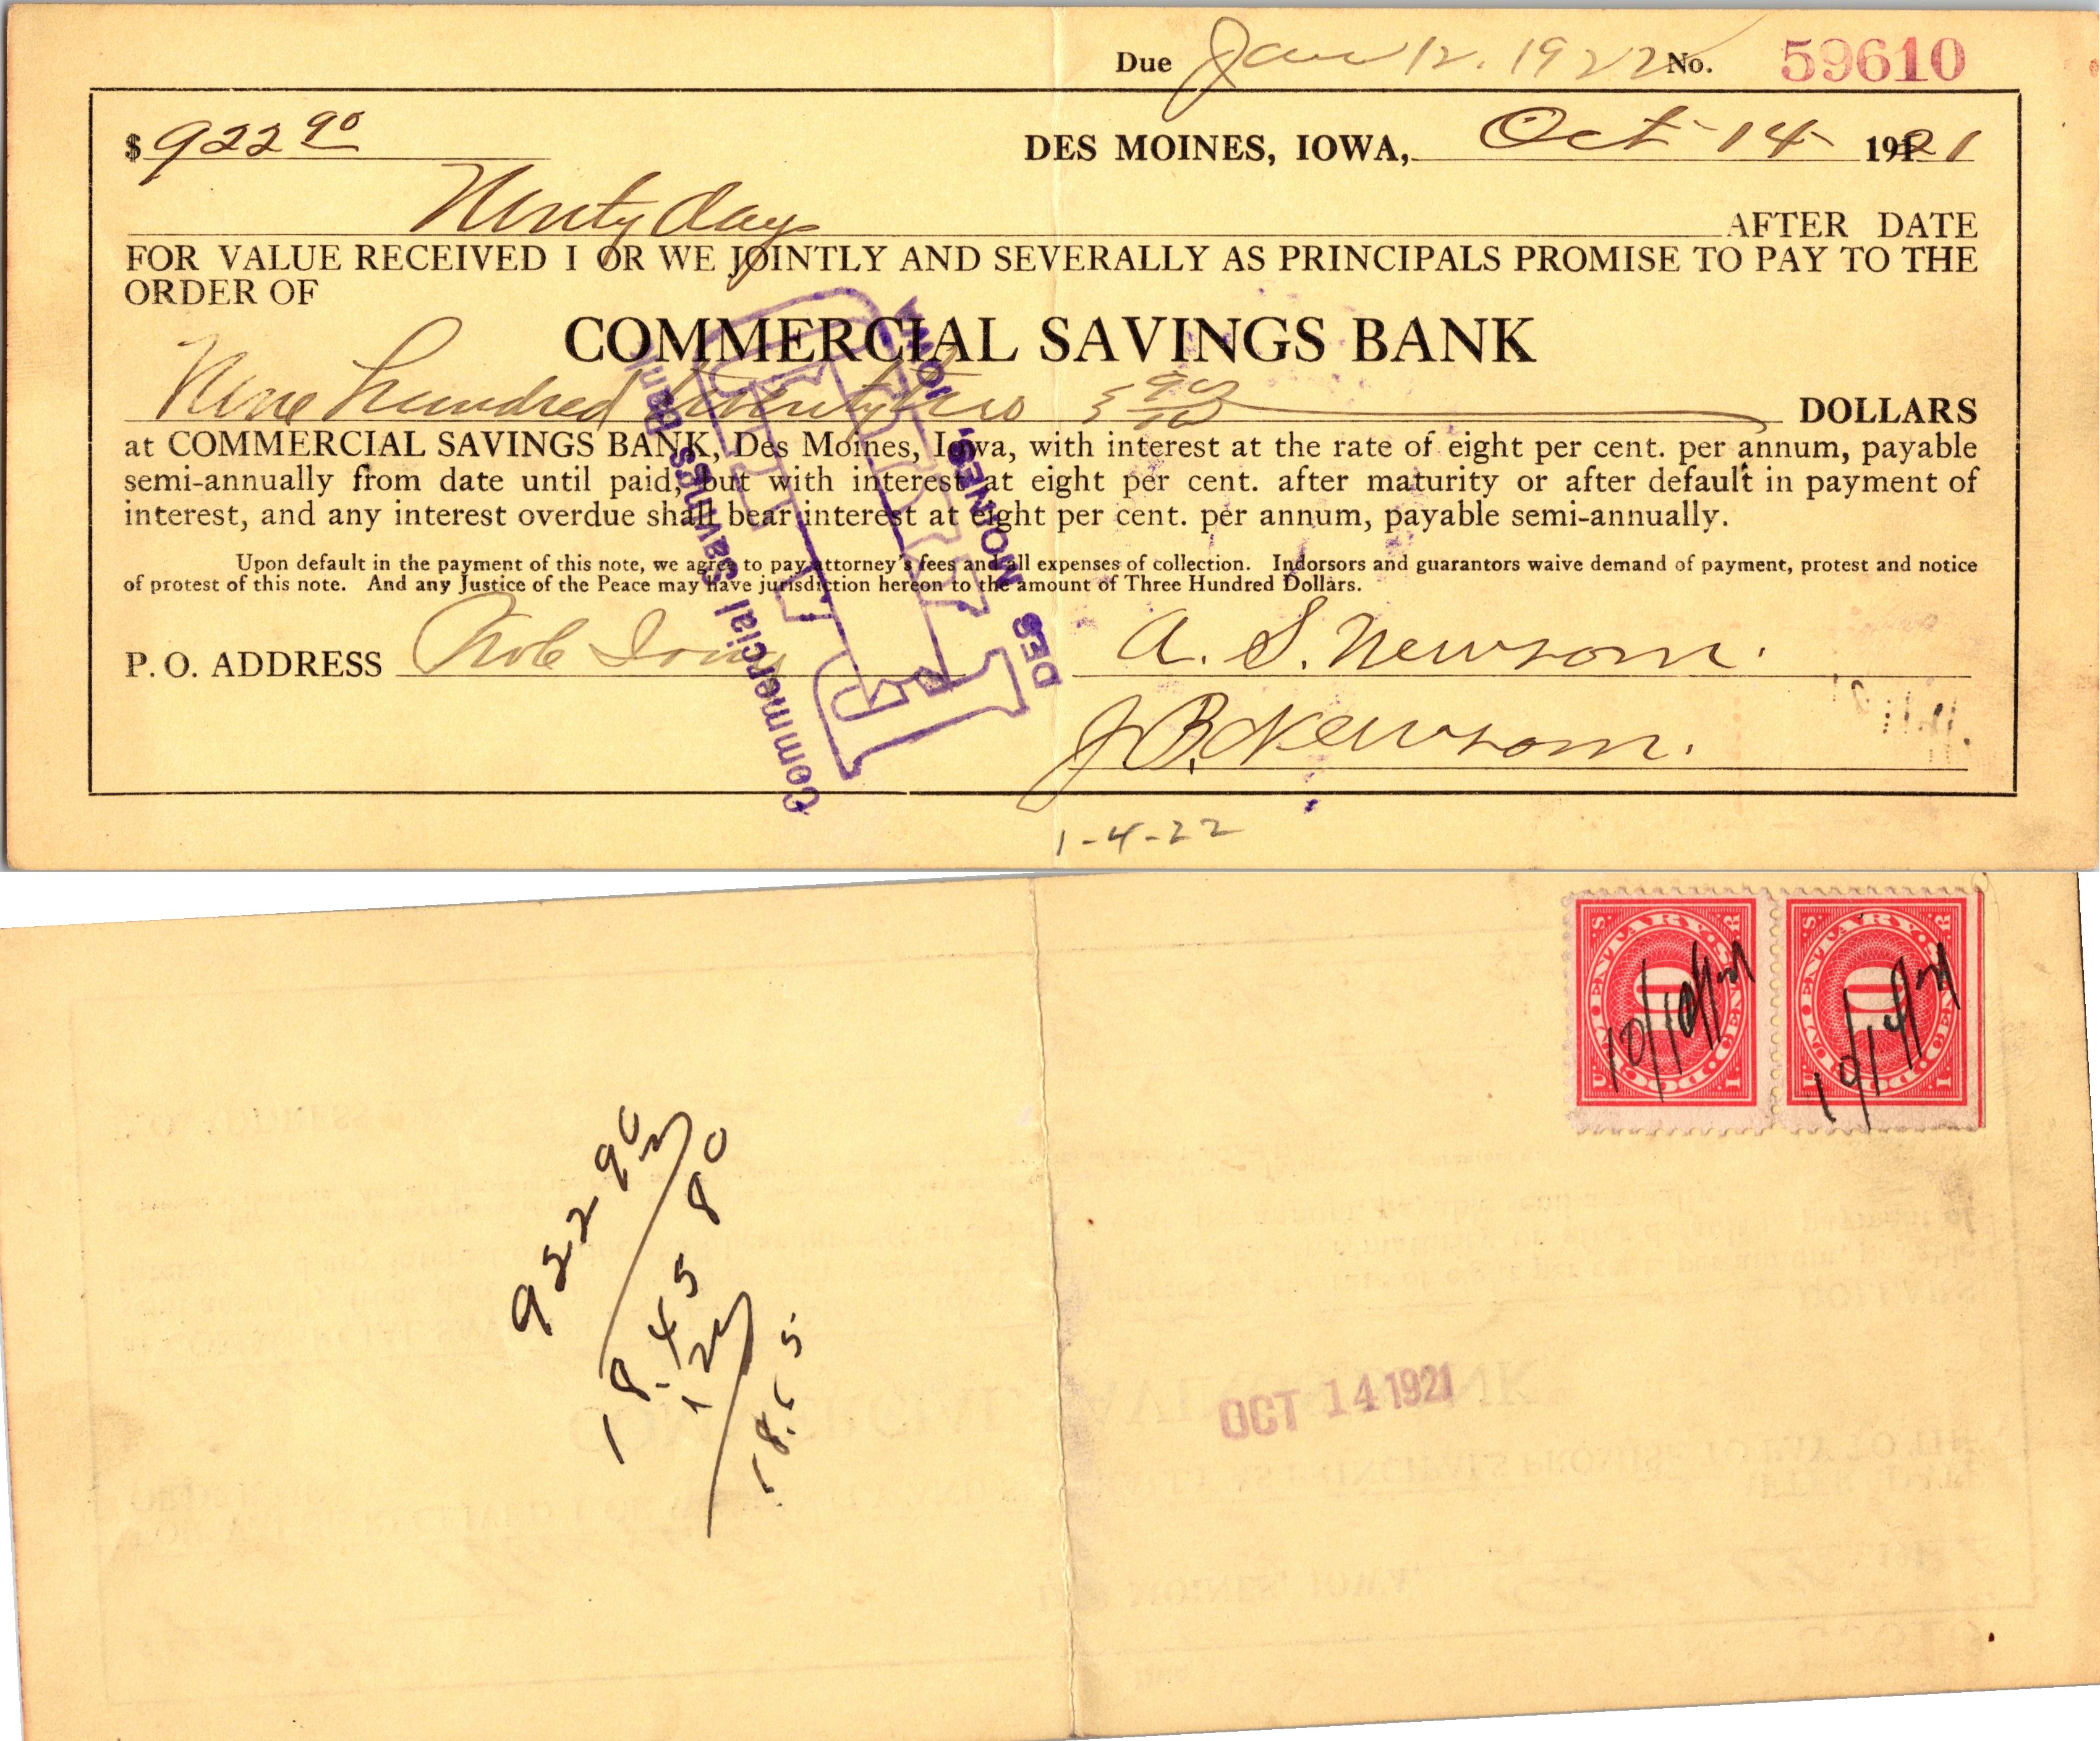 Due Jan 12. 1922 No. 59610
$ 922 90 DES MOINES, IOWA, Oct 14 1921
Ninty days AFTER DATE
FOR VALUE RECEIVED I OR WE JOINTLY AND SEVERALLY AS PRINCIPALS PROMISE TO PAY TO THE
ORDER OF
COMMERCIAL SAVINGS BANK
Nine hundred twenty two & 90/100 DOLLARS
at COMMERCIAL SAVINGS BANK, Des Moines, Iowa, with interest at the rate of eight per cent. per annum, payable
semi-annually from date until paid, but with interest at eight per cent. after maturity or after default in payment of
interest, and any interest overdue shall bear interest at eight per cent. per annum, payable semi-annually.
Upon default in the payment of this note, we agree to pay attorney's fees and all expenses of collection. Indorsors and guarantors waive demand of payment, protest and notice
of protest of this note. And any Justice of the Peace may have jurisdiction hereon to the amount of Three Hundred Dollars.
P. O. ADDRESS Iowa
A. S. Newsom.
J B. Newsom.
PAID
Commercial Savings Bank
DES MOINES, IOWA
1-4-22
U. S. I. R.
DOCUMENTARY
10
10/10/21
U. S. I. R.
DOCUMENTARY
10
10/14/21
922 90
18.45 80
12
18.65
OCT 14 1921